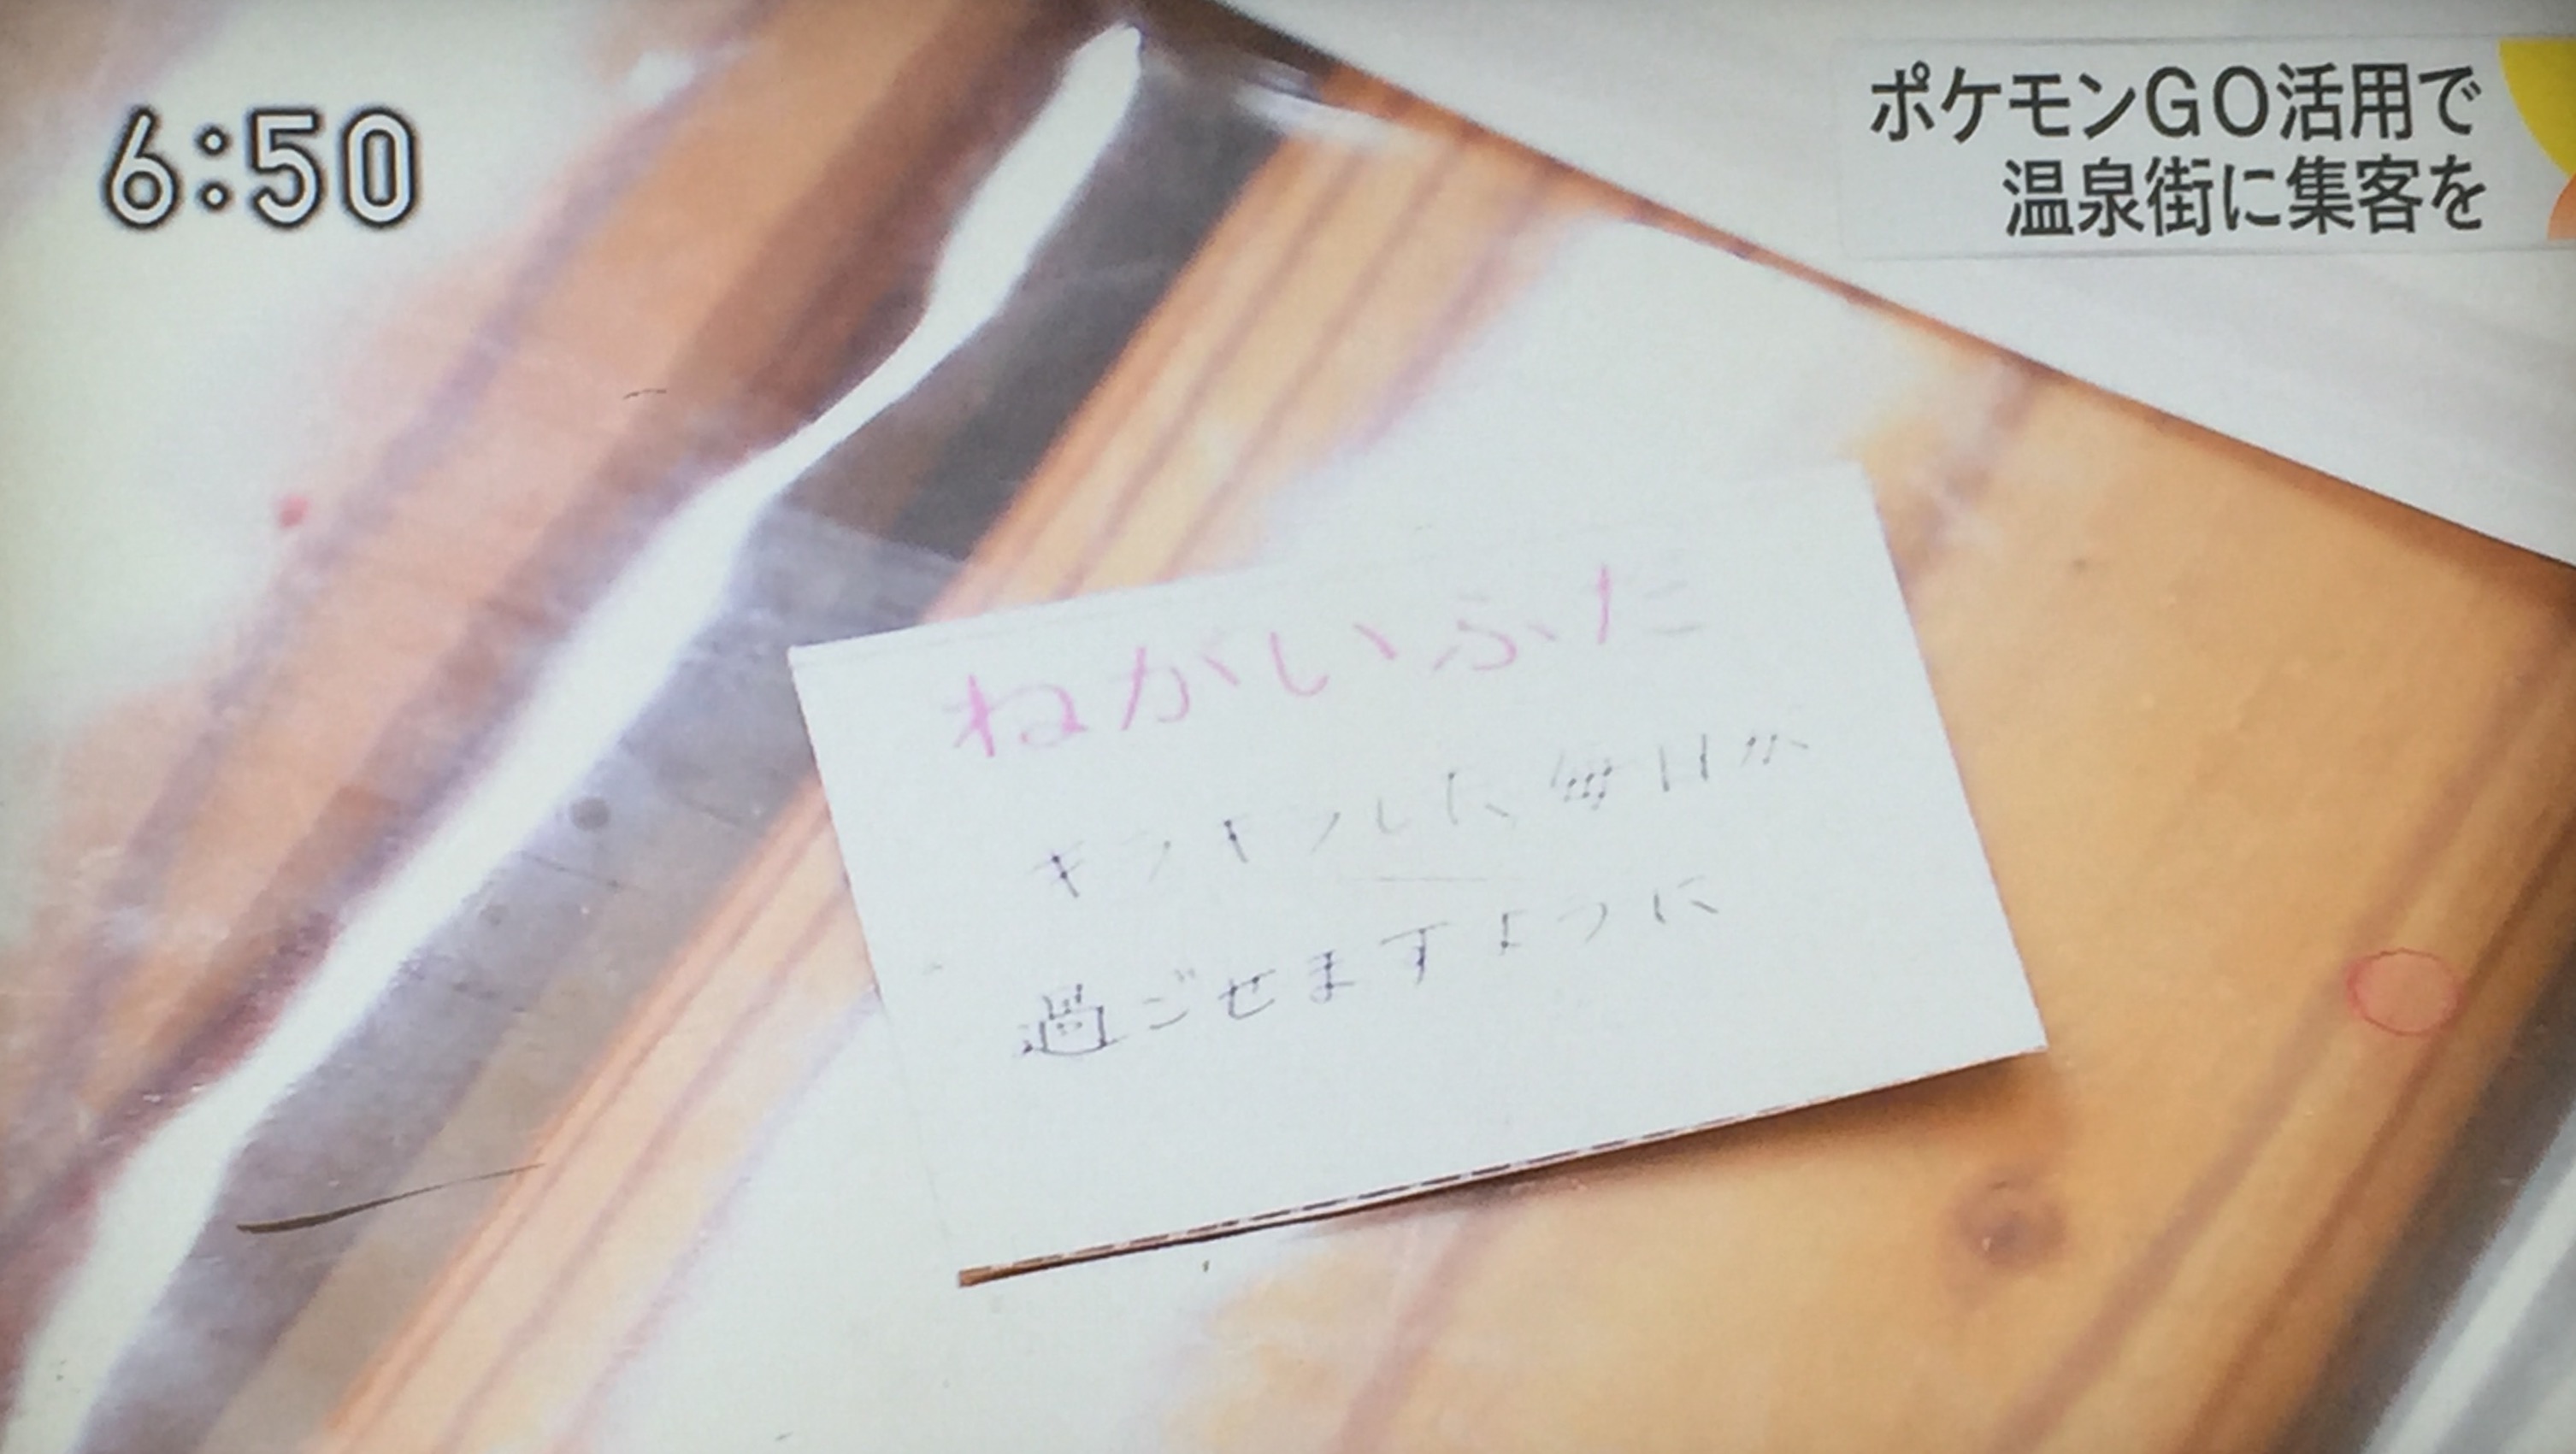 6:50
ポケモンGO活用で
温泉街に集客を
ねがいふだ
キラキラした毎日が
過ごせますように